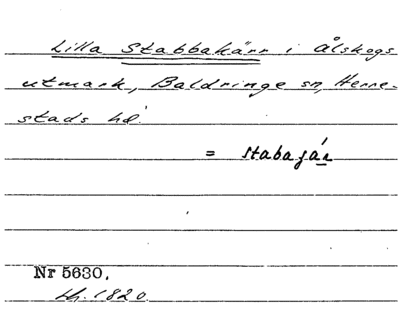 Lilla Stabbakärr i Ålskogs
utmark, Baldringe sn, Herre-
stads hd.
= stabasár
Nr 5630.
Lh. 1820.